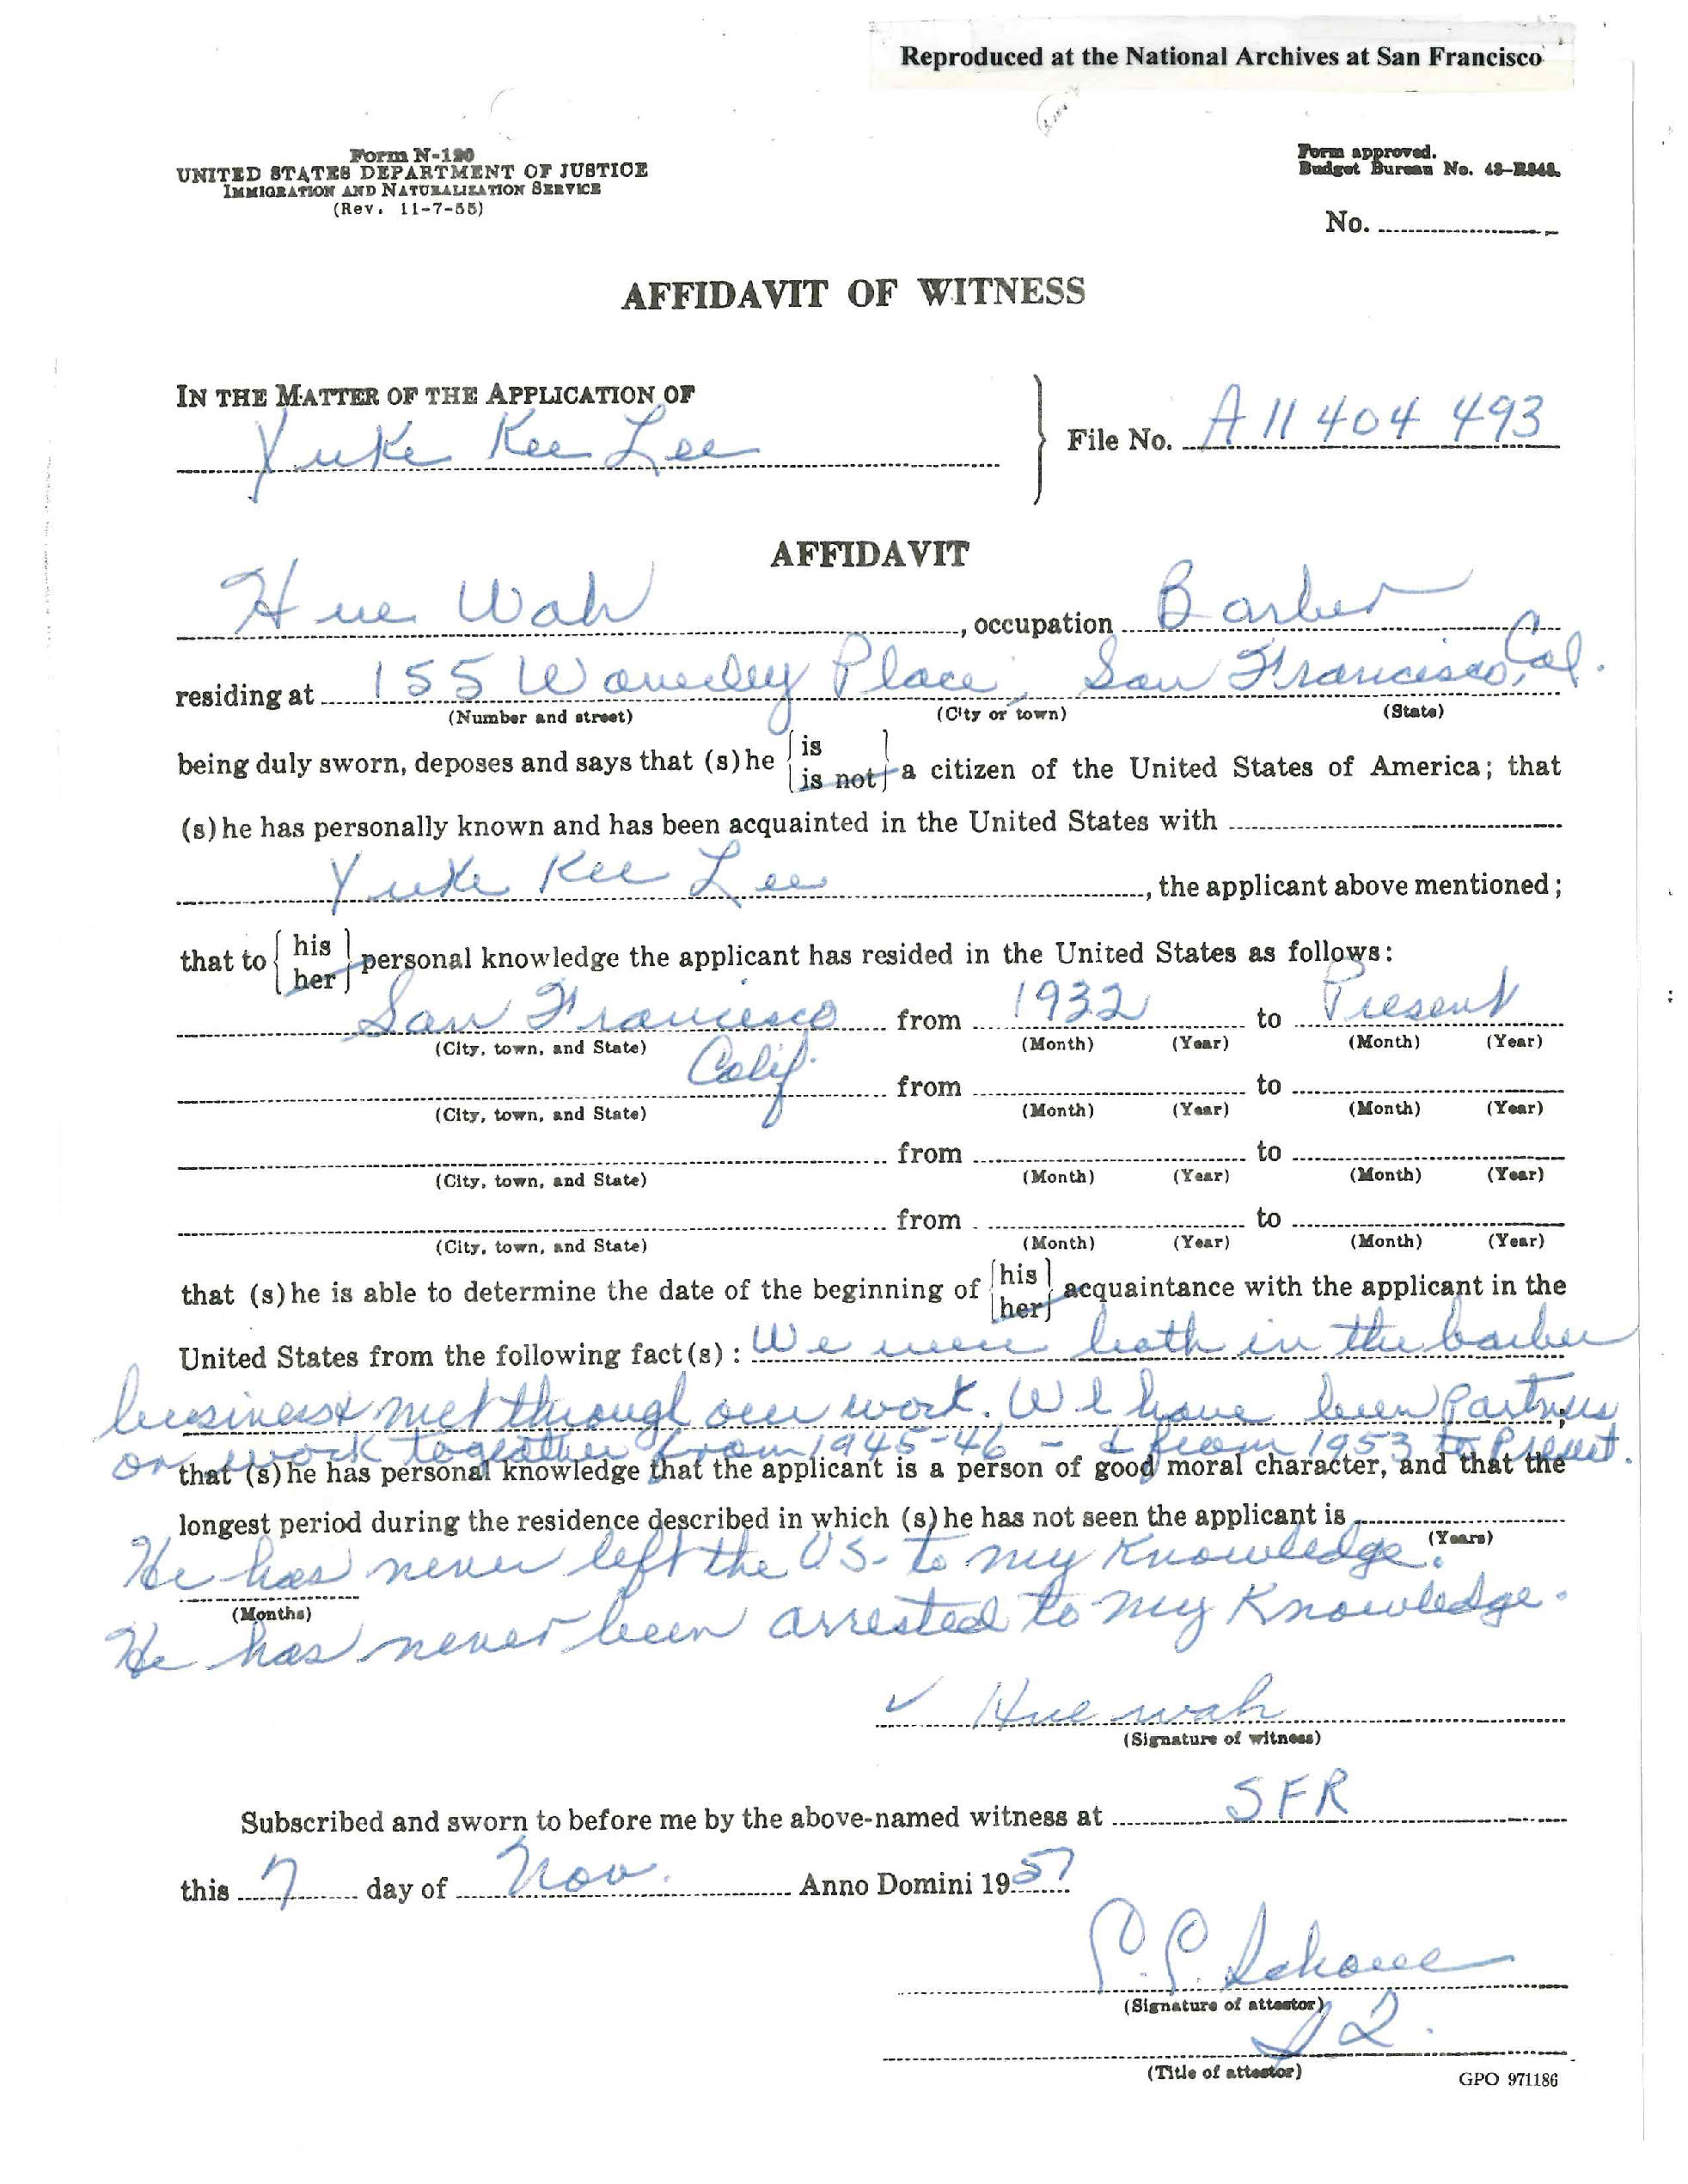 Reproduced at the National Archives at San Francisco
Form N-190
UNITED STATES DEPARTMENT OF JUSTICE
IMMIGRATION AND NATURALIZATION SERVICE
(Rev. 11-7-55)
Form approved.
Budget Bureau No. 43-R348.
No.
AFFIDAVIT OF WITNESS
IN THE MATTER OF THE APPLICATION OF
Yuke Kee Lee
File No. A 11 404 493
AFFIDAVIT
Hue Wah, occupation Barber
residing at 155 Waverley Place, San Francisco, Cal.
(Number and street) (City or town) (State)
being duly sworn, deposes and says that (s)he {is
is not} a citizen of the United States of America; that
(s)he has personally known and has been acquainted in the United States with
Yuke Kee Lee, the applicant above mentioned;
that to {his
her} personal knowledge the applicant has resided in the United States as follows:
San Francisco from 1932 to Present
(City, town, and State) (Month) (Year) (Month) (Year)
Calif. from to
(City, town, and State) (Month) (Year) (Month) (Year)
from to
(City, town, and State) (Month) (Year) (Month) (Year)
from to
(City, town, and State) (Month) (Year) (Month) (Year)
that (s)he is able to determine the date of the beginning of {his
her} acquaintance with the applicant in the
United States from the following fact(s): We were both in the barber
business & met through our work. We have been partners;
or work together from 1945-46 - & from 1953 to Present.
that (s)he has personal knowledge that the applicant is a person of good moral character, and that the
longest period during the residence described in which (s)he has not seen the applicant is
(Years)
He has never left the US. to my knowledge.
(Months)
He has never been arrested to my knowledge.
✓ Hue wah
(Signature of witness)
Subscribed and sworn to before me by the above-named witness at SFR
this 7 day of Nov. Anno Domini 1957
(Signature of attestor)
(Title of attestor)
GPO 971186